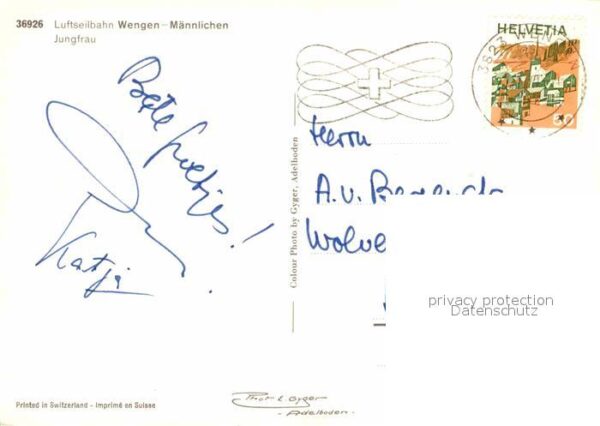 36926 Luftseilbahn Wengen – Männlichen
Jungfrau
HELVETIA
3823 WENGEN
Beste
groetjes!
Katja
Herrn
A. v.
Colour Photo by Gyger, Adelboden
privacy protection
Datenschutz
Printed in Switzerland - Imprimé en Suisse
Phot E Gyger
- Adelboden -